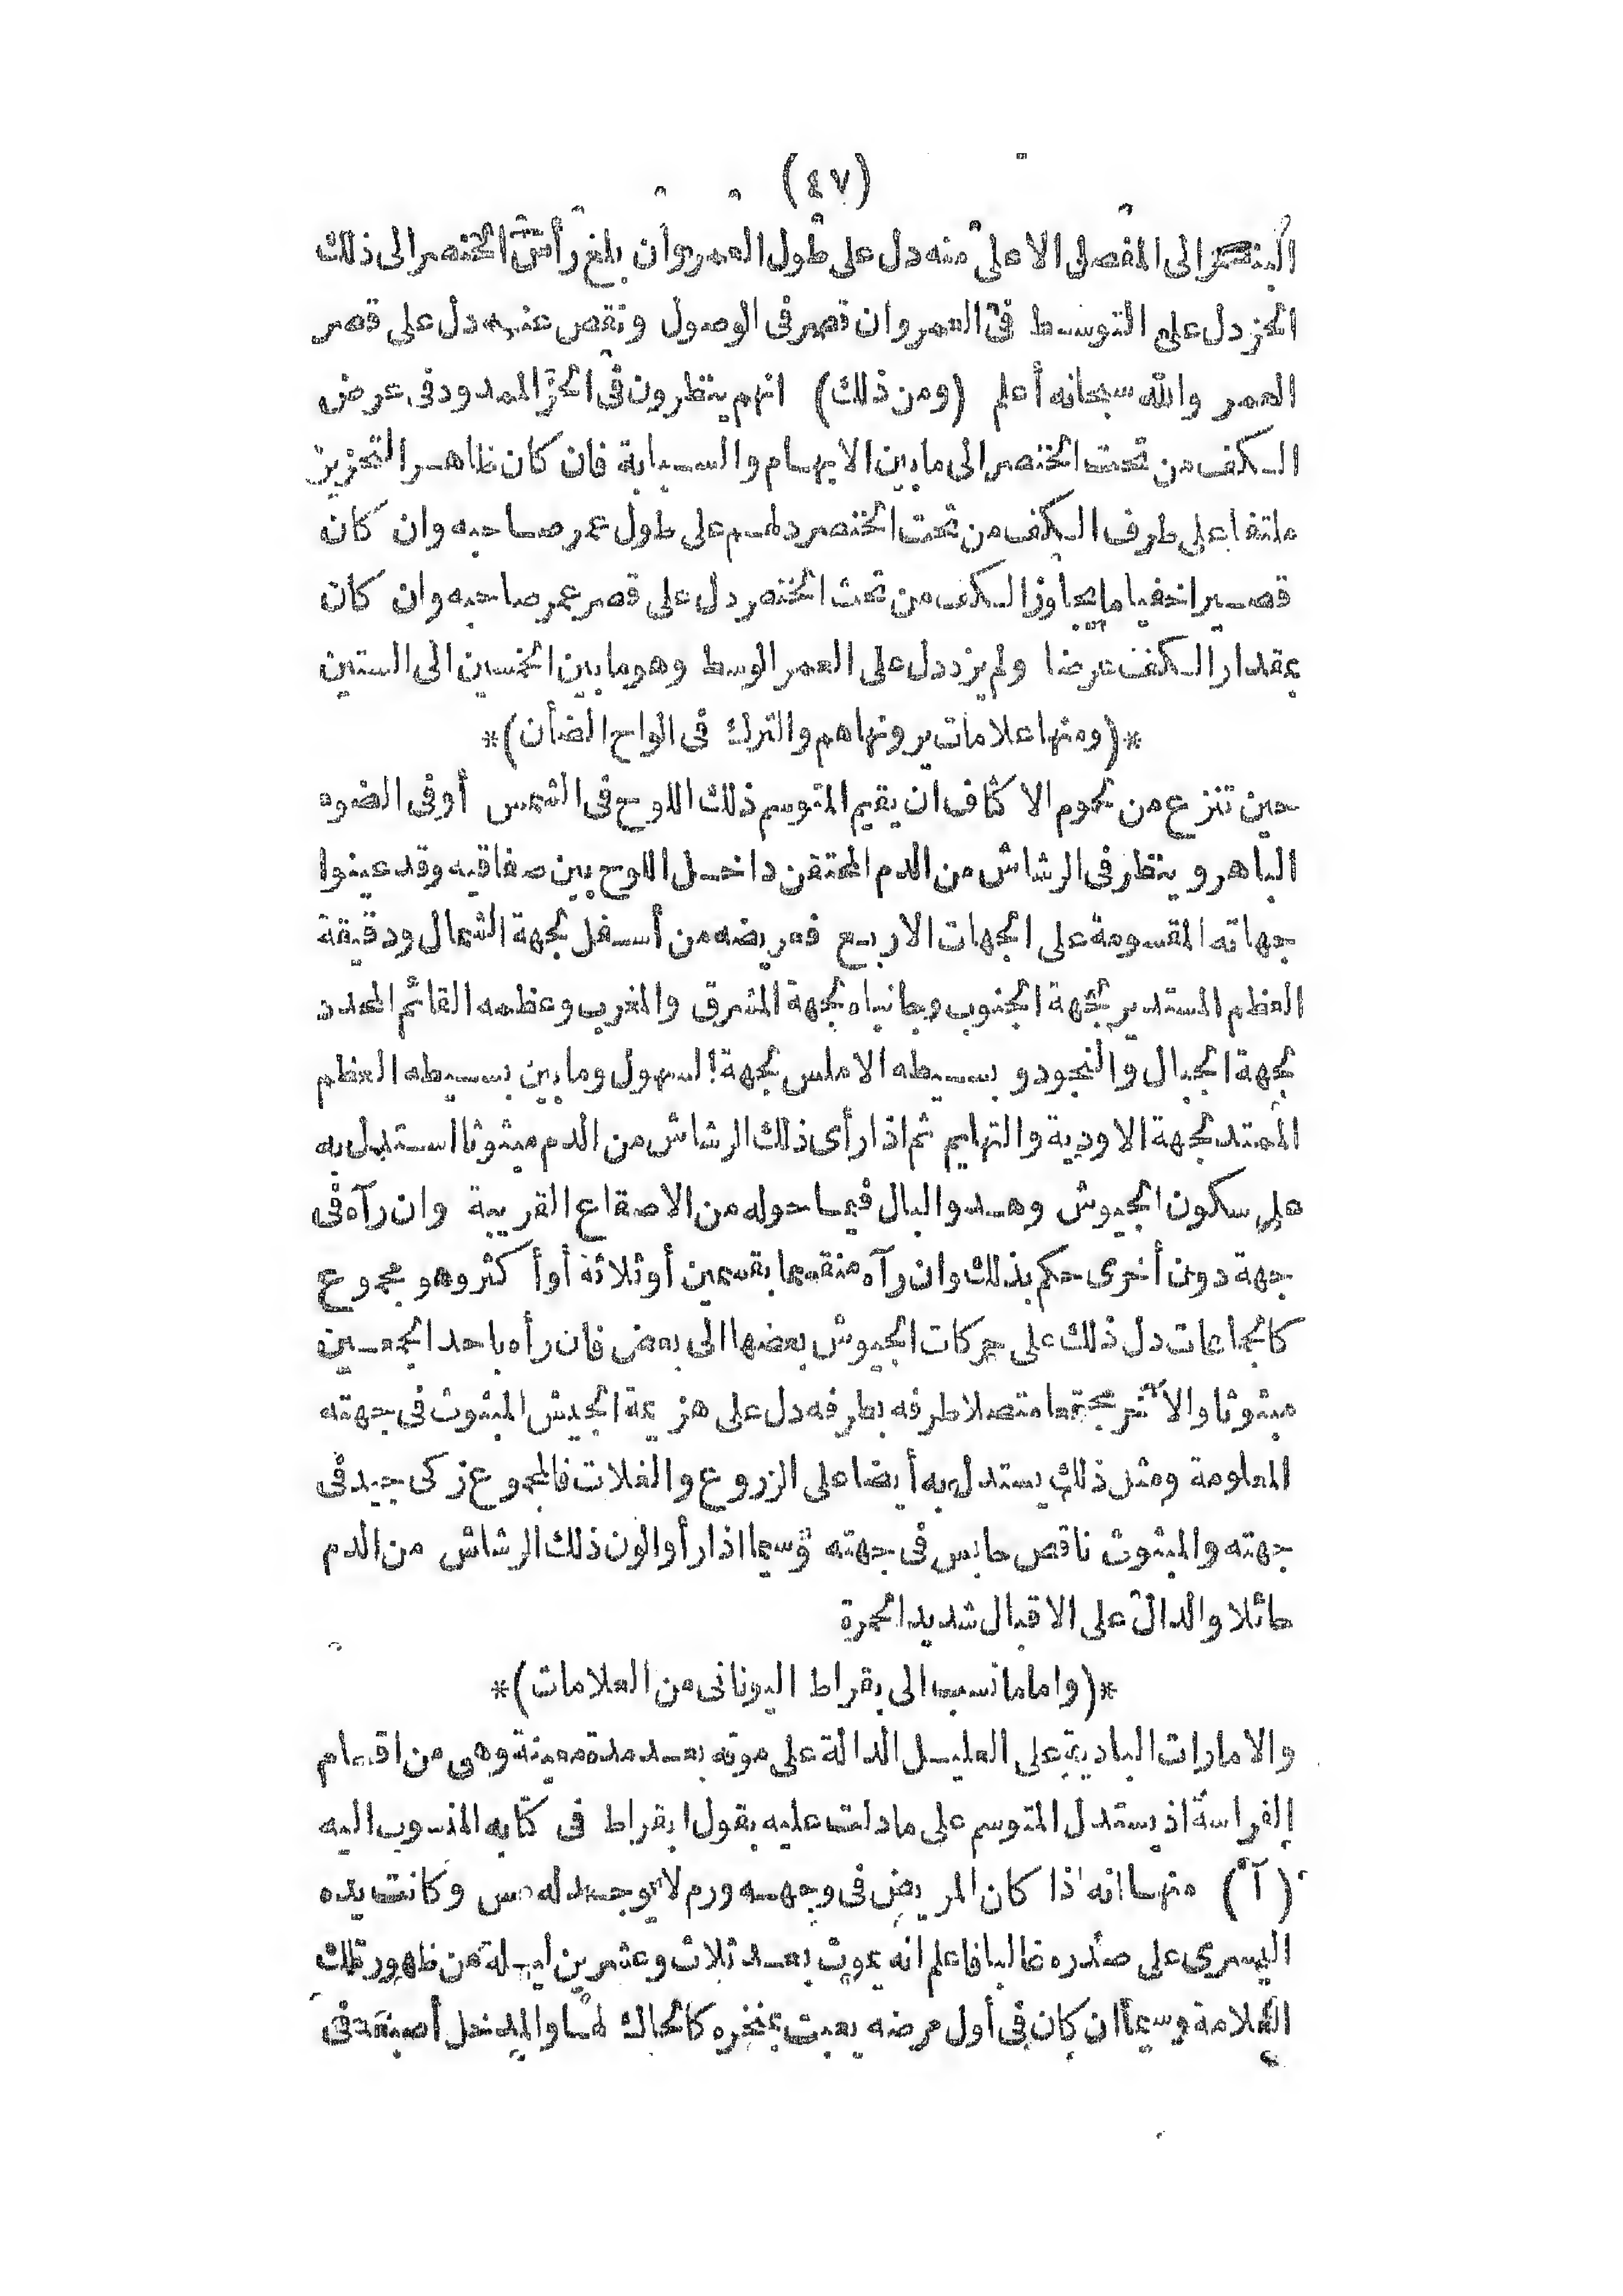 (٤٧)
البنصر الى المفصل الاعلى منه دل على طول العمر وان بلغ رأس الخنصر الى ذلك
الحز دل على التوسط فى العمر وان قصر فى الوصول ونقص عنه دل على قصر
العمر والله سبحانه أعلم (ومن ذلك) انهم ينظرون فى الحز الممدود فى عرض
الكف من تحت الخنصر الى ما بين الابهام والسبابة فان كان ظاهر التحزيز
ملتفا على طرف الكف من تحت الخنصر دلهم على طول عمر صاحبه وان كان
قصيرا خفيا ما يجاوز الكف من تحت الخنصر دل على قصر عمر صاحبه وان كان
بمقدار الكف عرضا ولم يزد دل على العمر الوسط وهو ما بين الخمسين الى الستين
*(ومنها علامات يرونها هم والترك فى الواح الضأن)*
حين تنزع من لحوم الاكتاف ان يقيم المتوسم ذلك اللوح فى الشمس أو فى الضوء
الباهر وينظر فى الرشاش من الدم المحتقن داخل اللوح بين صفاقيه وقد عينوا
جهاته المقسومة على الجهات الاربع فعريضه من أسفل لجهة الشمال ودقيقة
العظم المستدير لجهة الجنوب وجانباه لجهة المشرق والمغرب وعظمه القائم المحدد
لجهة الجبال والنجود وبسيطه الاملس لجهة السهول وما بين بسيطه العظم
الممتد لجهة الاودية والتهايم ثم اذا رأى ذلك الرشاش من الدم مبثوثا استدل به
على سكون الجيوش وهدو البال فيما حوله من الاصقاع القريبة وان رآه فى
جهة دون أخرى حكم بذلك وان رآه منقسما بقسمين أو ثلاثة أو أكثر وهو مجموع
كالجاعات دل ذلك على حركات الجيوش بعضها الى بعض فان رأه باحد الجمعين
مبثوثا والآخر مجتمعا متصلا طرفه بطرفه دل على هزيمة الجيش المبثوث فى جهته
المعلومة ومثل ذلك يستدل به أيضا على الزروع والغلات فالمجموع زكى جيد فى
جهته والمبثوث ناقص فى جهته وسيما اذا رأوا لون ذلك الرشاش من الدم
حائلا والدال على الاقبال شديد الحمرة
*(واما ما نسب الى بقراط اليونانى من العلامات)*
والامارات البادية على العليل الدالة على موته بعد مدة معينة وهى من اقسام
الفراسة اذ يستدل المتوسم على ما دلت عليه بقول ابقراط فى كتابه المنسوب اليه
(آ) منها انه اذا كان المريض فى وجهه ورم لا يوجد له مس وكانت يده
اليسرى على صدره غالبا فاعلم انه يموت بعد ثلاث وعشرين ليلة من ظهور تلك
العلامة وسيما ان كان فى أول مرضه يعبث بمنخره كالحاك لهما والمدخل أصبعه فى